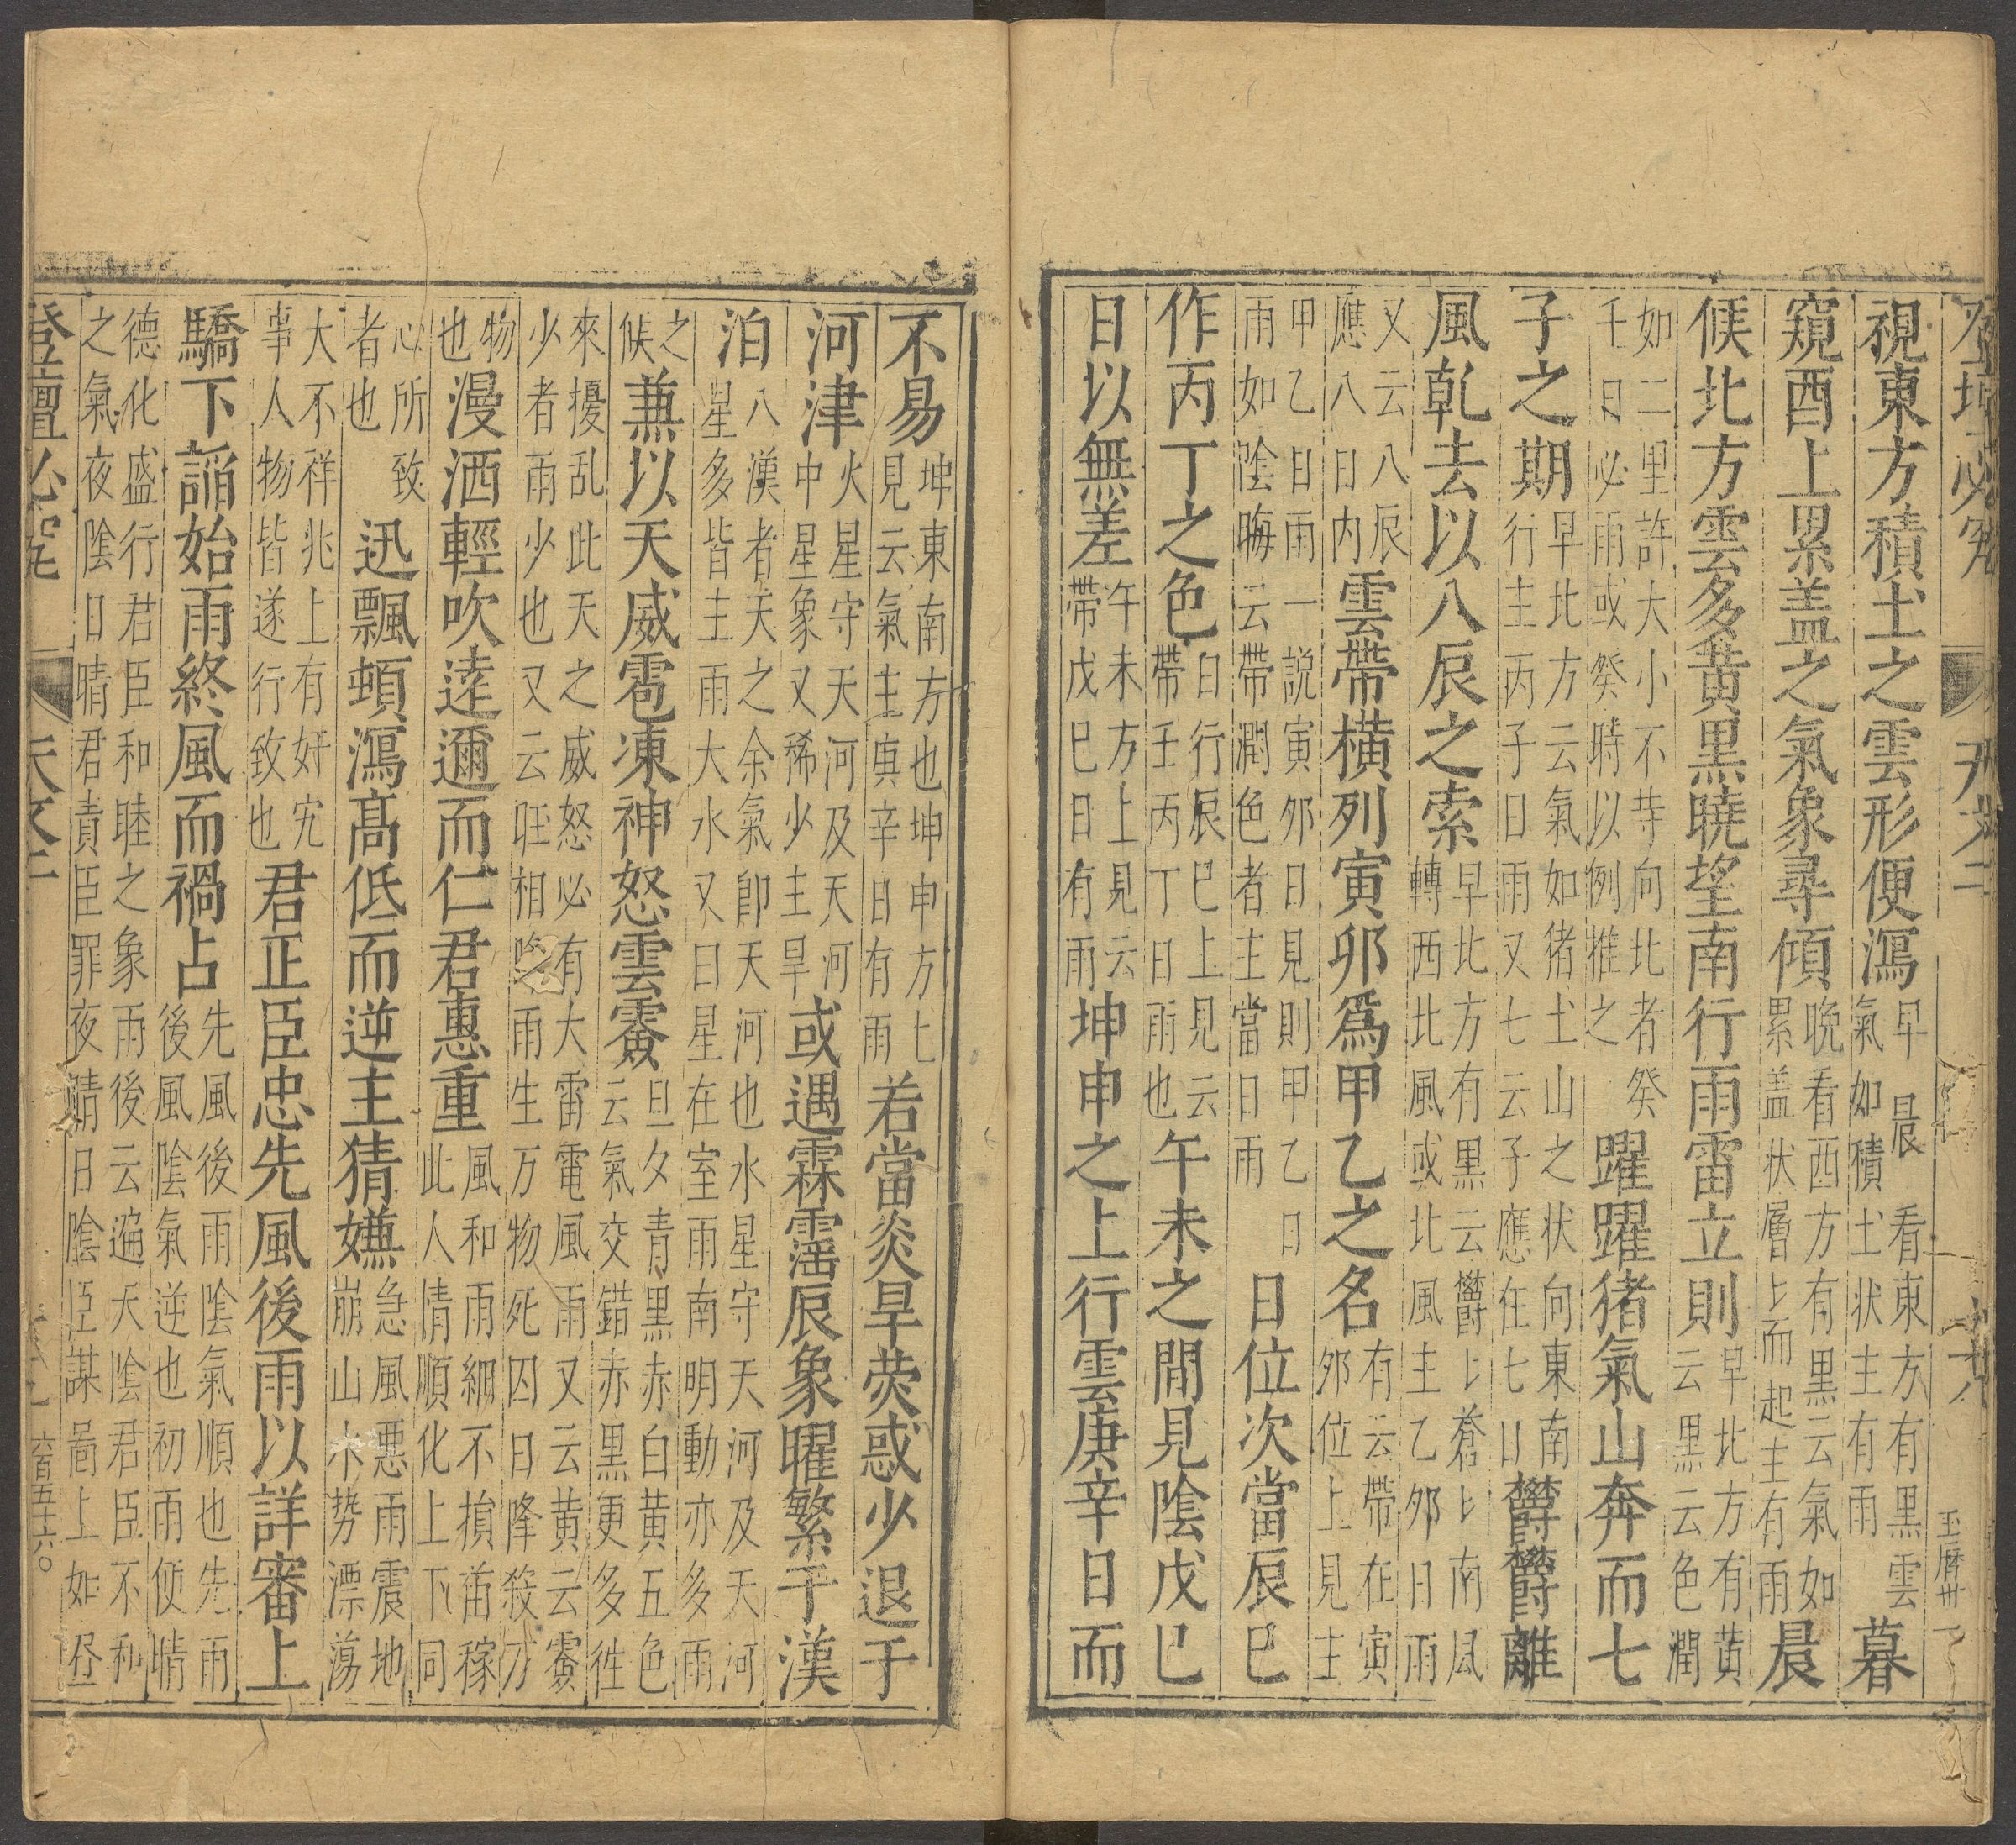 登壇必究
天文二
玉曆卌
視東方積土之雲形便瀉早晨看東方有黑雲氣如積土狀主有雨暮
窺酉上累盖之氣象尋傾晩看西方有黑云氣如累盖狀層〻而起主有雨晨
候北方雲多黄黒曉望南行雨雷立則早北方有黄云黒云色潤
如二里許大小不䒭向北者癸壬日必雨或癸時以例推之躍躍猪氣山奔而七
子之期早北方云氣如猪土山之状向東南行主丙子日雨又七云子應在七日欝欝離
風乹去以八辰之索早北方有黒云欝〻蒼〻南風轉西北風或北風主乙夘日雨
又云八辰應八日内雲帶橫列寅卯爲甲乙之名有云帶在寅夘位上見主
甲乙日雨一説寅夘日見則甲乙日雨如陰晦云帶潤色者主當日雨日位次當辰巳
作丙丁之色日行辰巳上見云帶壬丙丁日雨也午未之間見陰戊巳
日以無差午未方上見云帶戊巳日有雨坤申之上行雲庚辛日而
不易坤東南方也坤申方上見云氣主庚辛日有雨若當炎旱荧惑少退于
河津火星守天河及天河中星象又稀少主旱或遇霖霪辰象曜繁于漢
泊八漢者天之余氣卽天河也水星守天河及天河星多皆主雨大水又曰星在室雨南明動亦多雨
之候兼以天威雹凍神怒雲霿旦夕青黒赤白黄五色云氣交錯赤黒更多徃
來擾乱此天之威怒必有大雷電風雨又云黄云霿少者雨少也又云旺相雨生万物死囚日降殺万
物也漫洒輕吹逹邇而仁君惠重風和雨細不損苗稼此人情順化上下同
心所致者也迅飄頓瀉髙低而逆主猜嫌急風悪雨震地崩山木势漂蕩
大不祥兆上有奸宄事人物皆遂行致也君正臣忠先風後雨以詳審上
驕下謟始雨終風而禍占先風後雨陰氣順也先雨後風陰氣逆也初雨便晴
德化盛行君臣和睦之象雨後云遍天陰君臣不和之氣夜陰日晴君責臣罪夜晴日陰臣謀啚上如昼
登壇必究
天文二
六百五十六〇